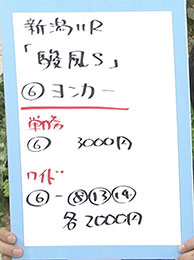 新潟11R
「駿風S」
⑥ヨンカー
単勝
⑥ 3000円
ワイド
⑥-⑧⑬⑭
各2000円